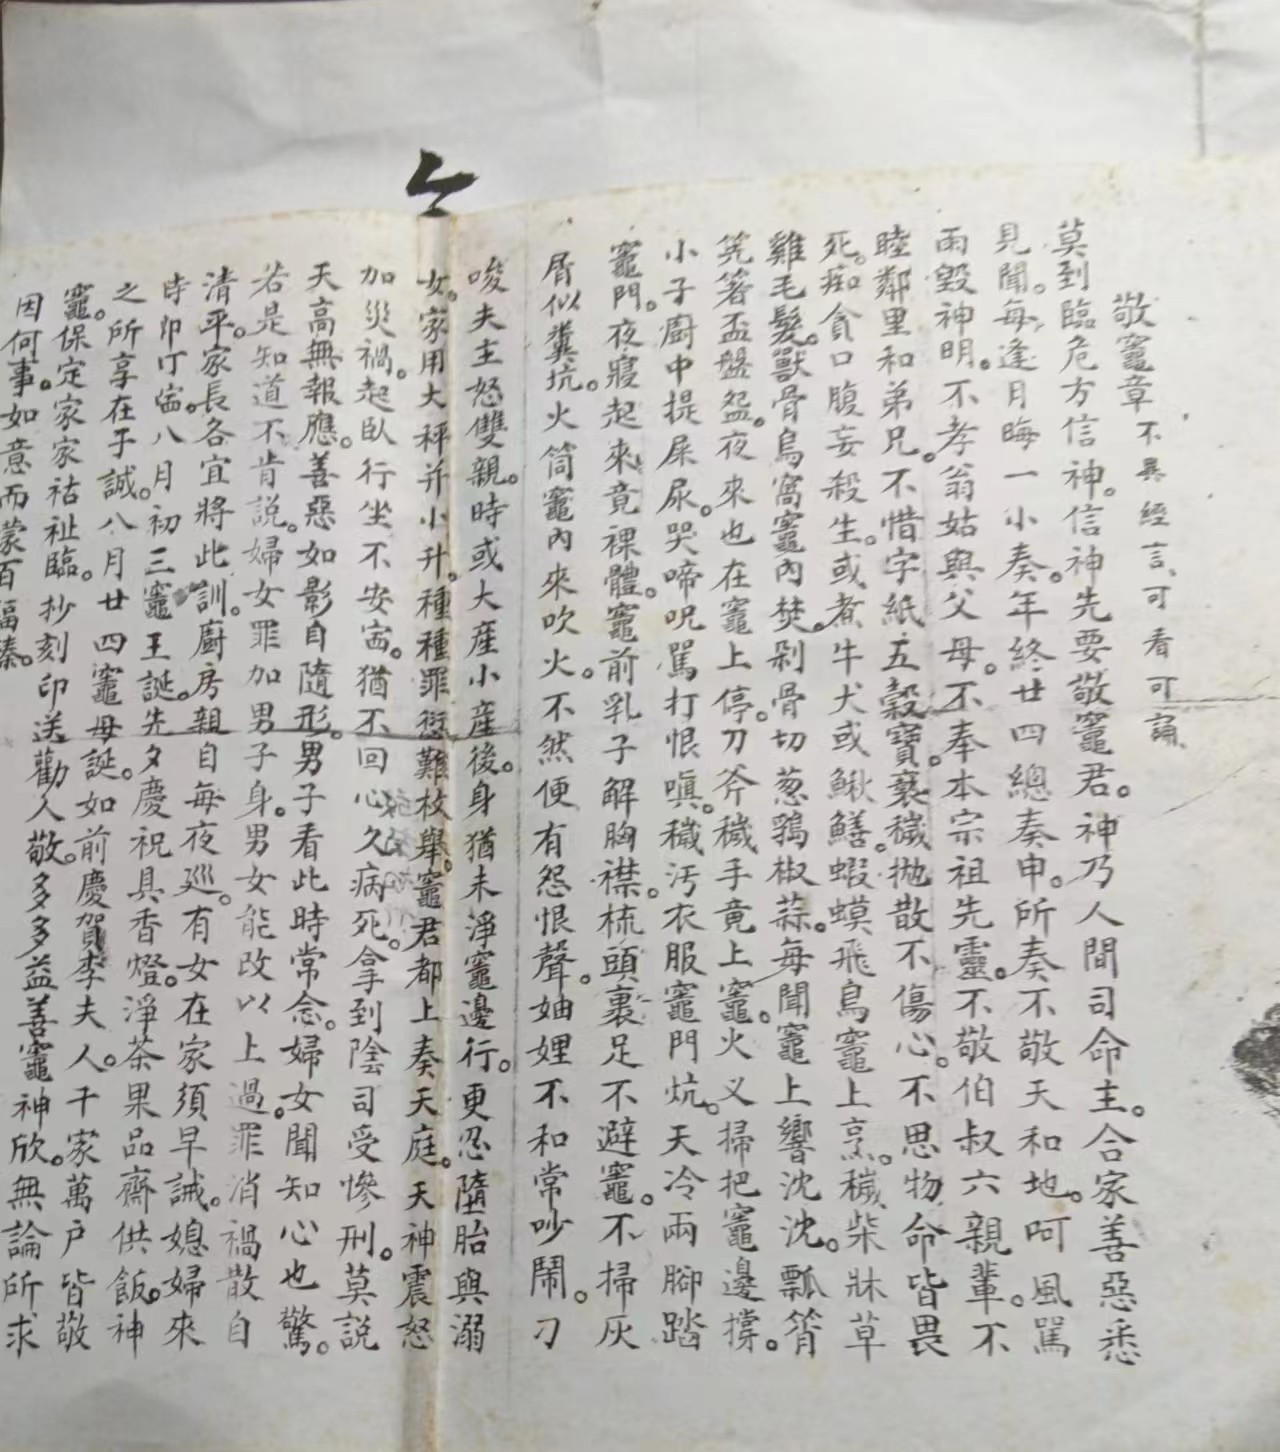 敬竈章 不異經言、可看可誦、
莫到臨危方信神。信神先要敬竈君。神乃人間司命主。合家善惡悉
見聞。每逢月晦一小奏。年終廿四總奏申。所奏不敬天和地。呵風罵
雨毀神明。不孝翁姑與父母。不奉本宗祖先靈。不敬伯叔六親輩。不
睦鄰里和弟兄。不惜字紙五穀寶。褻穢拋散不傷心。不思物命皆畏
死。痴貪口腹妄殺生。或煮牛犬或鰍鱔。蝦蟆飛鳥竈上烹。穢柴牀草
雞毛髮。獸骨鳥窩竈內焚。剁骨切葱鷄椒蒜。每聞竈上響沈沈。瓢筲
筅箸盃盤盌。夜來也在竈上停。刀斧穢手竟上竈。火叉掃把竈邊撐。
小子廚中提屎尿。哭啼呪罵打恨嗔。穢污衣服竈門炕。天冷兩腳踏
竈門。夜寢起來竟裸體。竈前乳子解胸襟。梳頭裹足不避竈。不掃灰
屑似糞坑。火筒竈內來吹火。不然便有怨恨聲。妯娌不和常吵鬧。刁
唆夫主怒雙親。時或大産小産後。身猶未淨竈邊行。更忍墮胎與溺
女。家用大秤并小升。種種罪愆難枚舉。竈君都上奏天庭。天神震怒
加災禍。起臥行坐不安寍。猶不回心久病死。拿到陰司受慘刑。莫說
天高無報應。善惡如影自隨形。男子看此時常念。婦女聞知心也驚。
若是知道不肯說。婦女罪加男子身。男女能改以上過。罪消禍散自
清平。家長各宜將此訓。廚房親自每夜廵。有女在家須早誡。媳婦來
時卽叮寍。八月初三竈王誕。先夕慶祝具香燈。淨茶果品齋供飯。神
之所享在于誠。八月廿四竈母誕。如前慶賀李夫人。千家萬户皆敬
竈。保定家家祜祉臨。抄刻印送勸人敬。多多益善竈神欣。無論所求
因何事。如意而蒙百福臻。